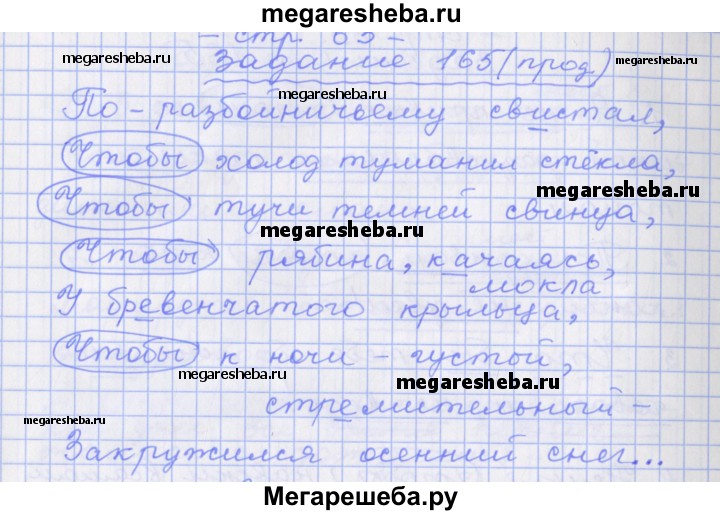 megaresheba.ru
- стр. 85 -
megaresheba.ru
Задание 165 (прод.)
megaresheba.ru
По-разбойничьему свистал,
Чтобы холод туманил стёкла,
megaresheba.ru
Чтобы тучи темней свинца,
megaresheba.ru
Чтобы рябина, качаясь,
мокла
У бревенчатого крыльца,
Чтобы к ночи - густой,
megaresheba.ru
megaresheba.ru
стремительный -
megaresheba.ru
Закружился осенний снег...
Мегарешеба.ру